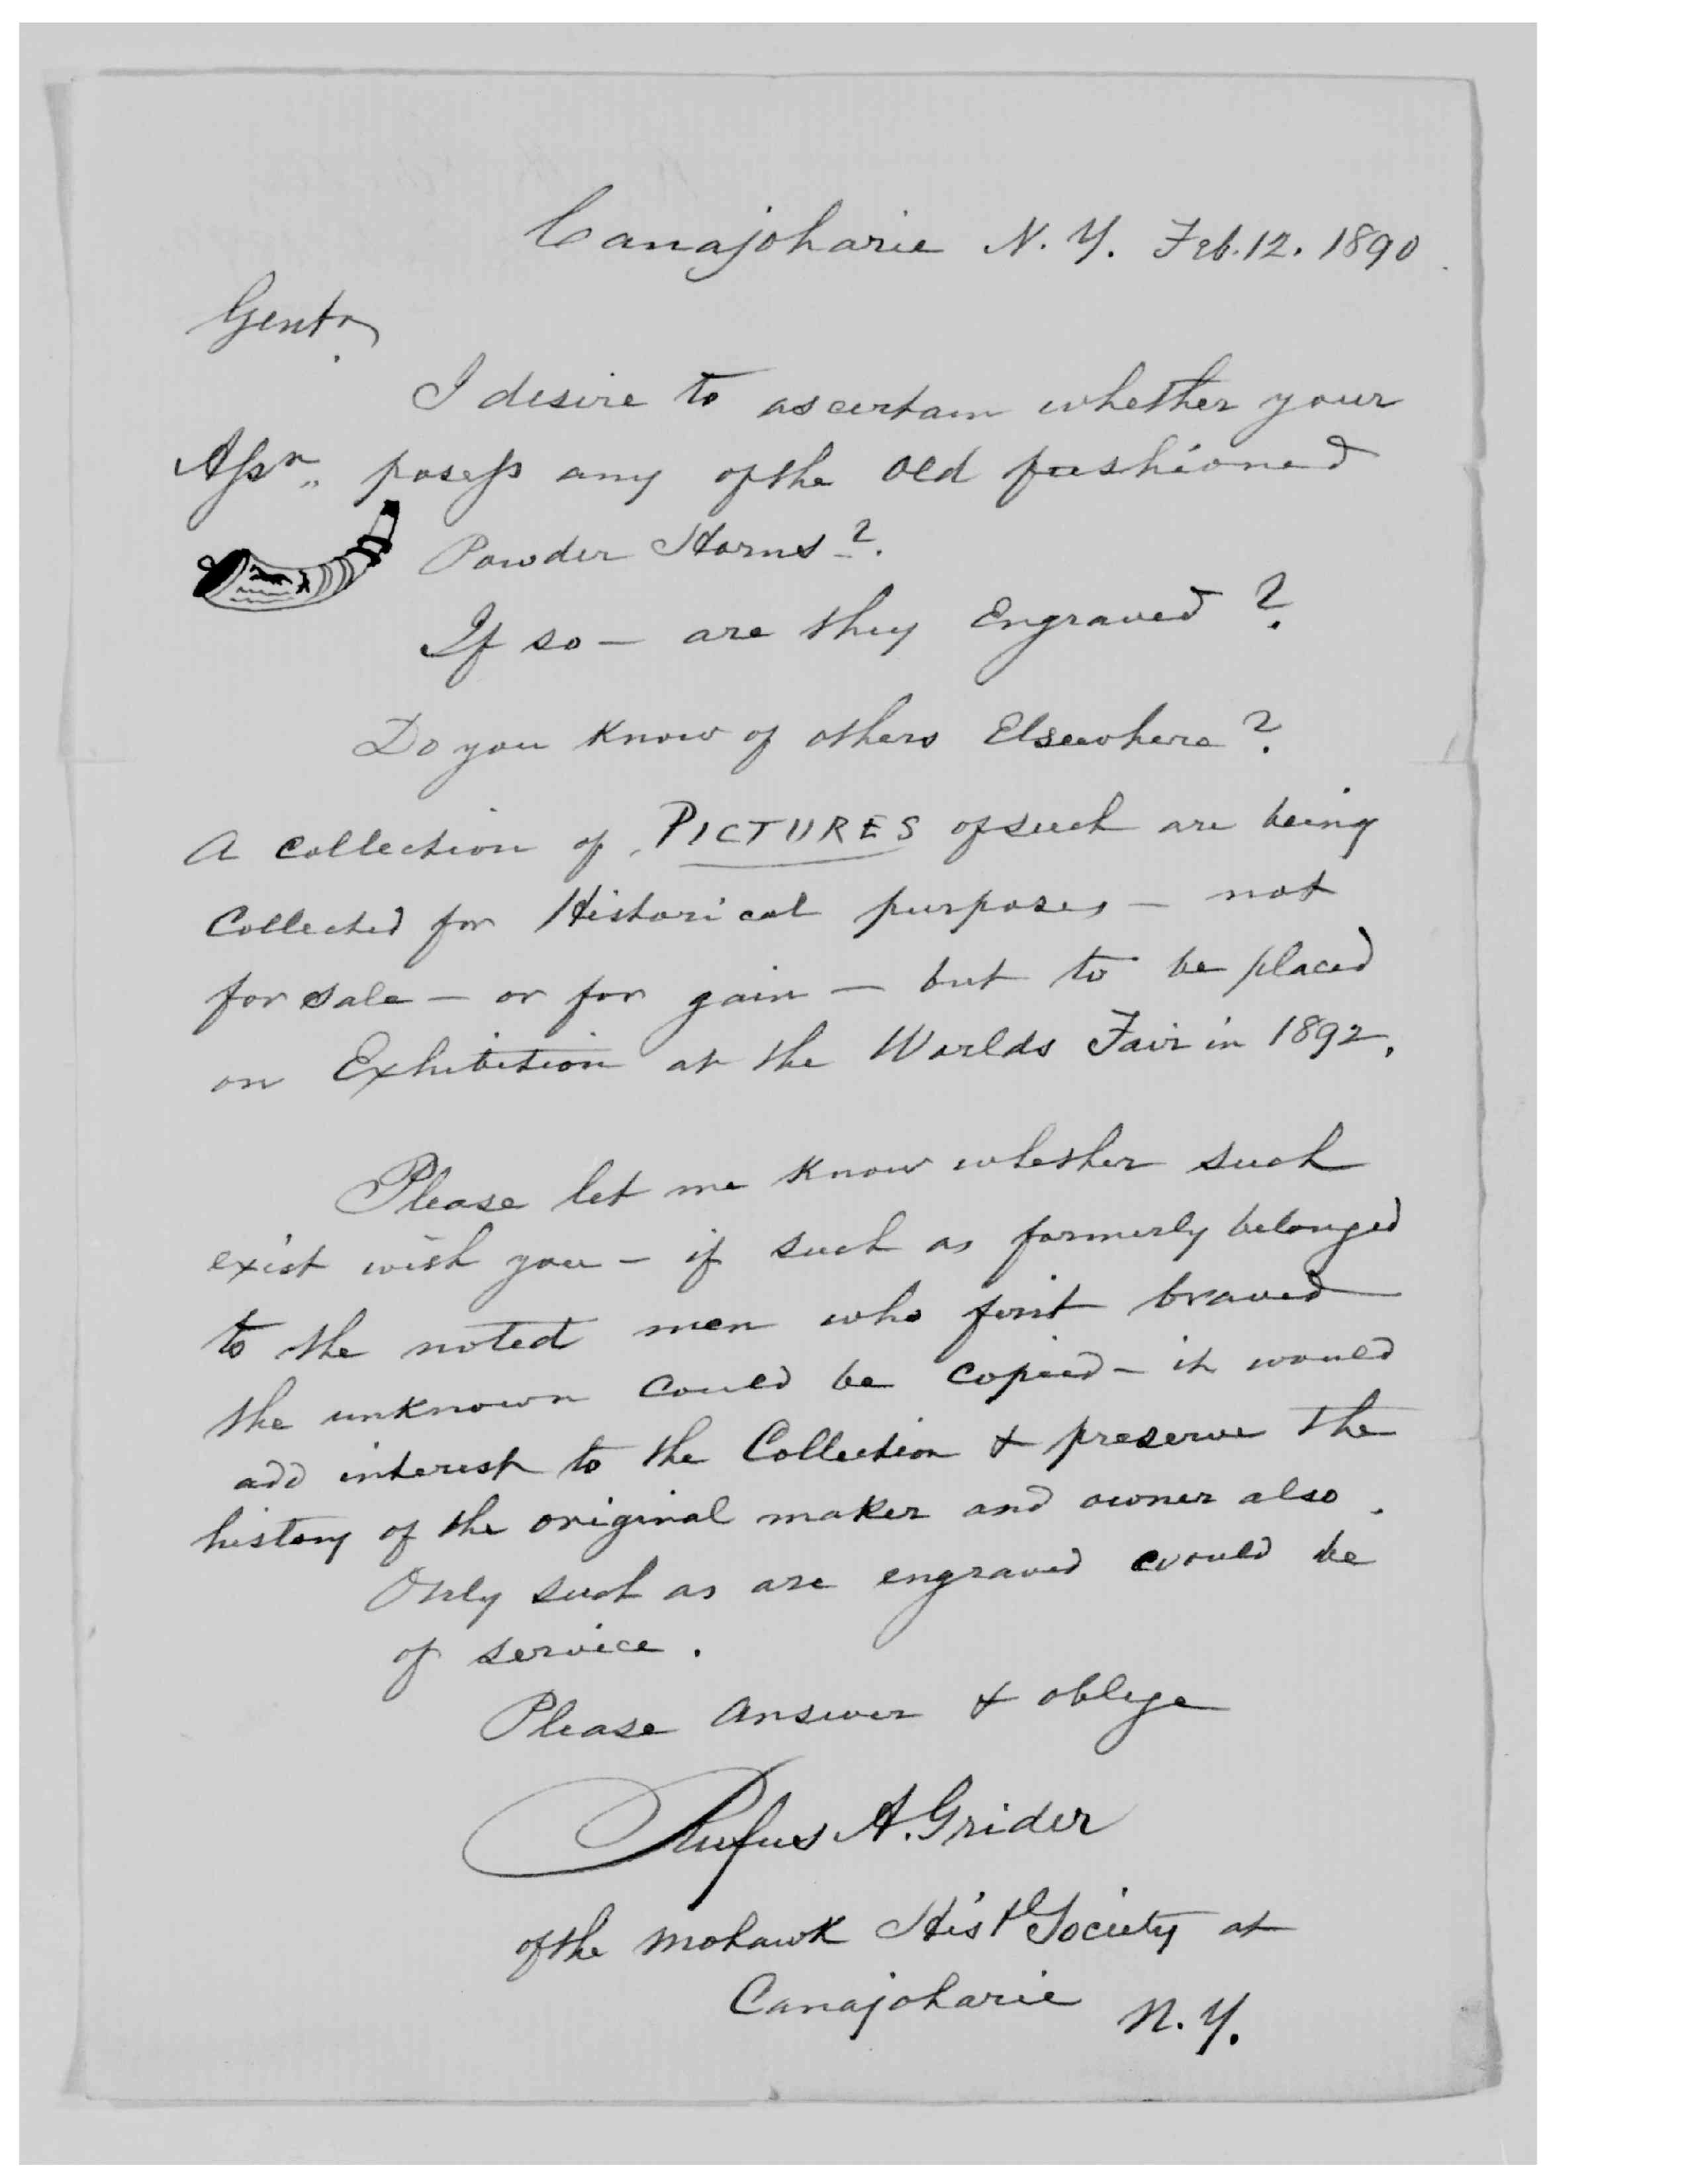 Canajoharie N. Y. Feb. 12. 1890
Gentn
I desire to ascertain whether your
Assn. posess any of the old fashioned
Powder Horns?
If so — are they Engraved?
Do you know of others Elsewhere?
A collection of PICTURES of such are being
Collected for Historical purposes — not
for sale — or for gain — but to be placed
on Exhibition at the Worlds Fair in 1892.
Please let me know whether such
exist with you — if such as formerly belonged
to the noted men who first braved
the unknown could be copied — it would
add interest to the Collection & preserve the
history of the original maker and owner also.
Only such as are engraved would be
of service.
Please answer & oblige
Rufus A. Grider
of the Mohawk Histl Society at
Canajoharie N. Y.